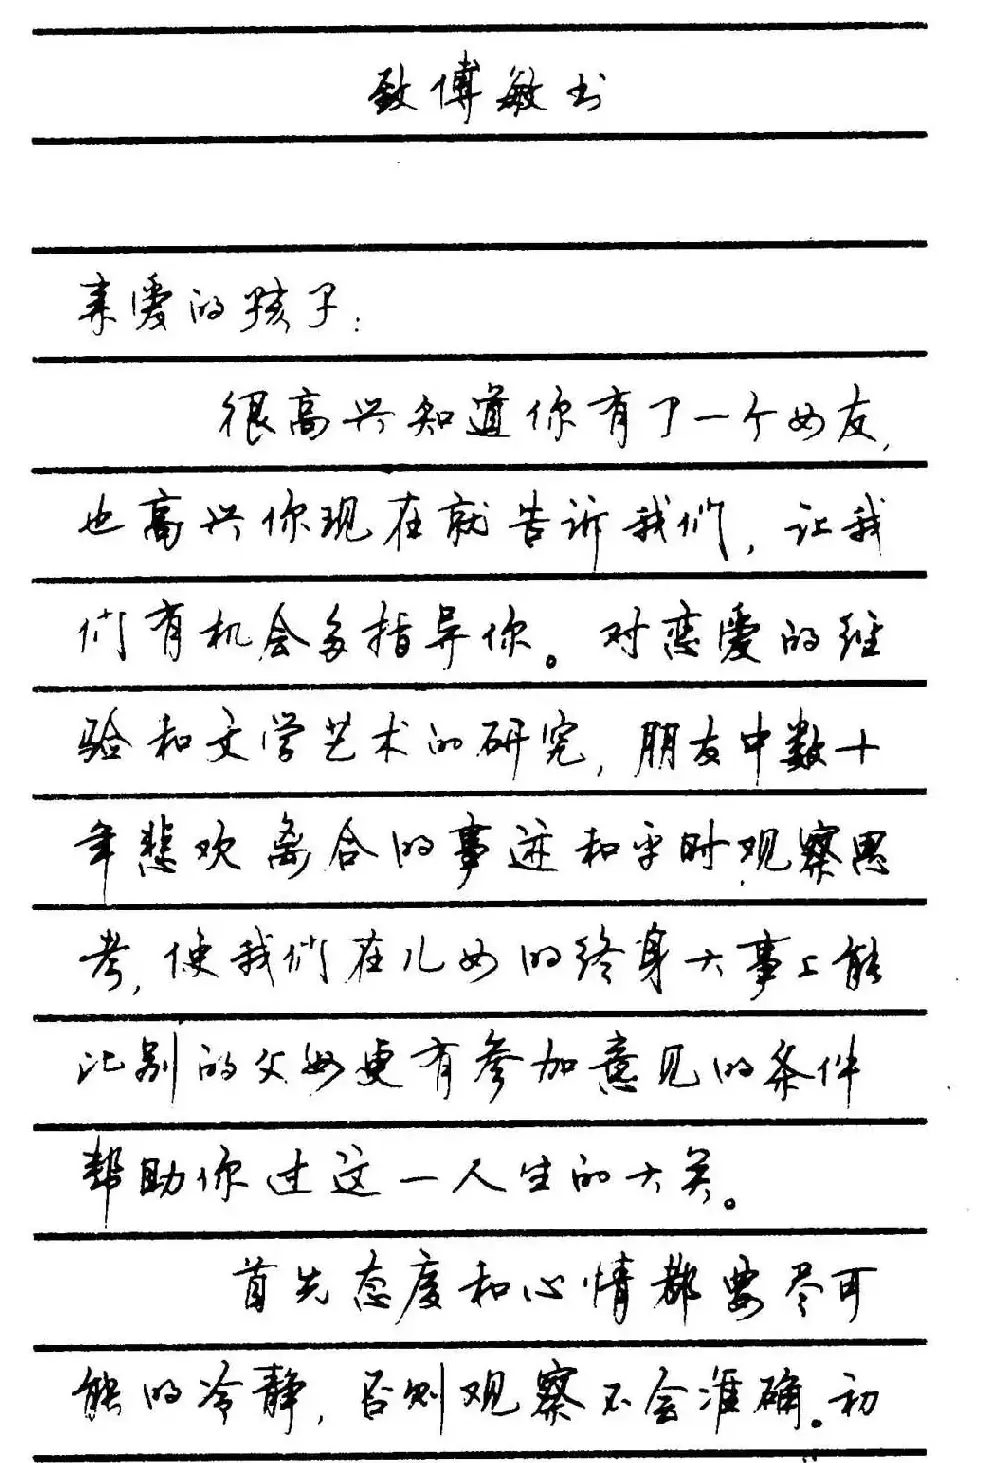 致傅敏书
亲爱的孩子：
很高兴知道你有了一个女友，
也高兴你现在就告诉我们，让我
们有机会多指导你。对恋爱的经
验和文学艺术的研究，朋友中数十
年悲欢离合的事迹和平时观察思
考，使我们在儿女的终身大事上能
比别的父母更有参加意见的条件
帮助你过这一人生的大关。
首先态度和心情都要尽可
能的冷静，否则观察不会准确。初